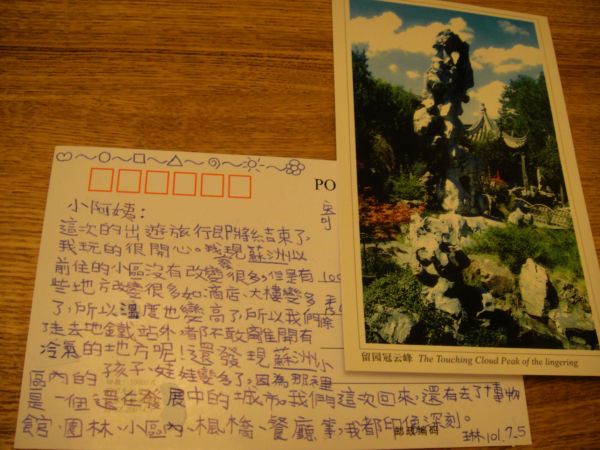 PO
小阿姨：
這次的出遊旅行即將結束了，
我玩的很開心。我發現蘇洲以
前住的小區沒有改變很多，但是有
些地方改變很多如：商店、大樓變多
了，所以溫度也變高了，所以我們除
了去地鐵站外，都不敢離開有
冷氣的地方呢！還發現蘇洲小
區內的孩子、娃娃變多了，因為那裡
是一個還在發展中的城市。我們這次回來，還有去了博物
館、園林、小區內、楓橋、餐廳等，我都印象深刻。
琳101.7.5
邮政编码
留园冠云峰 The Touching Cloud Peak of the lingering